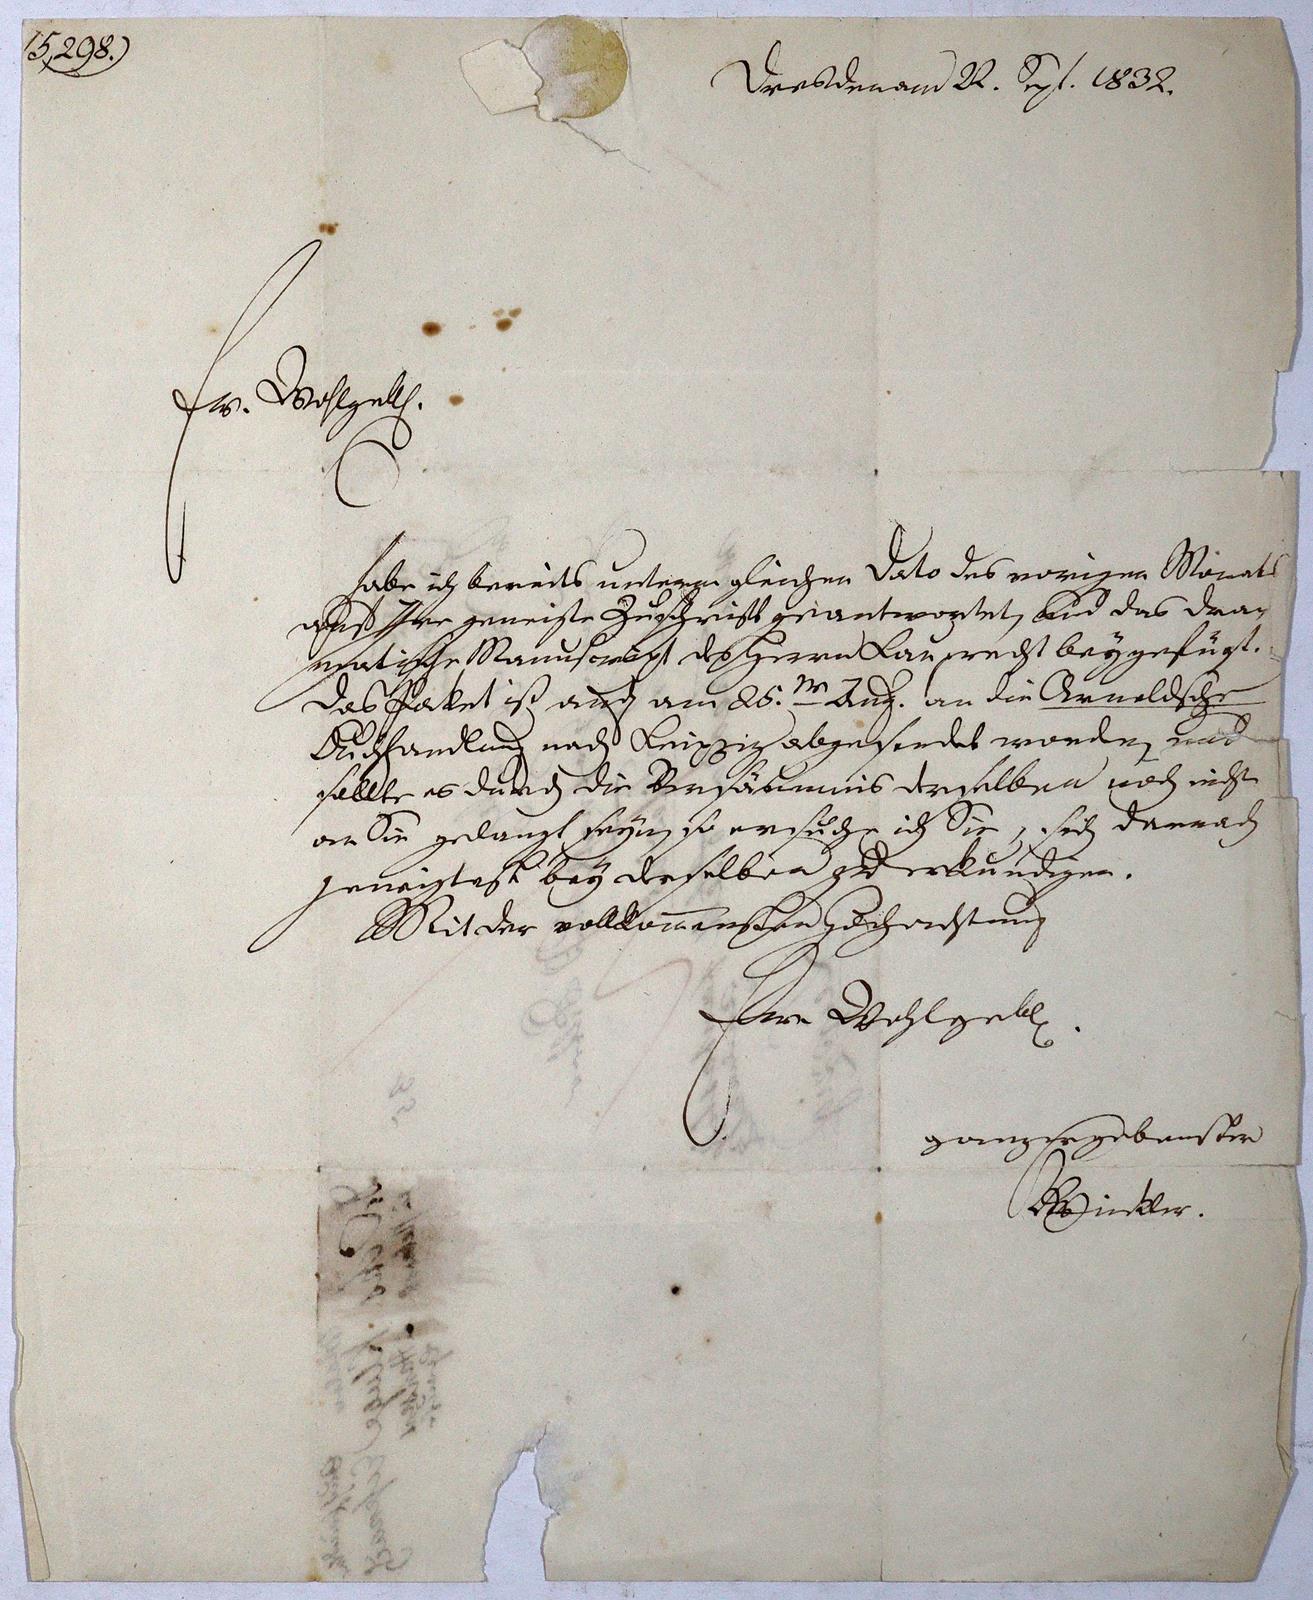 15,298.)
Dresden am 22. Sept. 1832.
Ew. Wohlgeb.
habe ich bereits unterm gleichen Dato des vorigen Monats
auf Ihre geneigte Zuschrift geantwortet, und das dra-
matische Manuscript des Herrn Lamprecht beygefügt.
Das Paket ist auch am 26. Aug. an die Arnoldsche
Buchhandlung nach Leipzig abgesendet worden, und
sollte es durch die Versäumnis derselben noch nicht
an Sie gelangt seyn, so ersuche ich Sie, sich darnach
geneigtest bey derselben zu erkundigen.
Mit der vollkommensten Hochachtung
Ewr. Wohlgeb.
ganz ergebenster
Winkler.